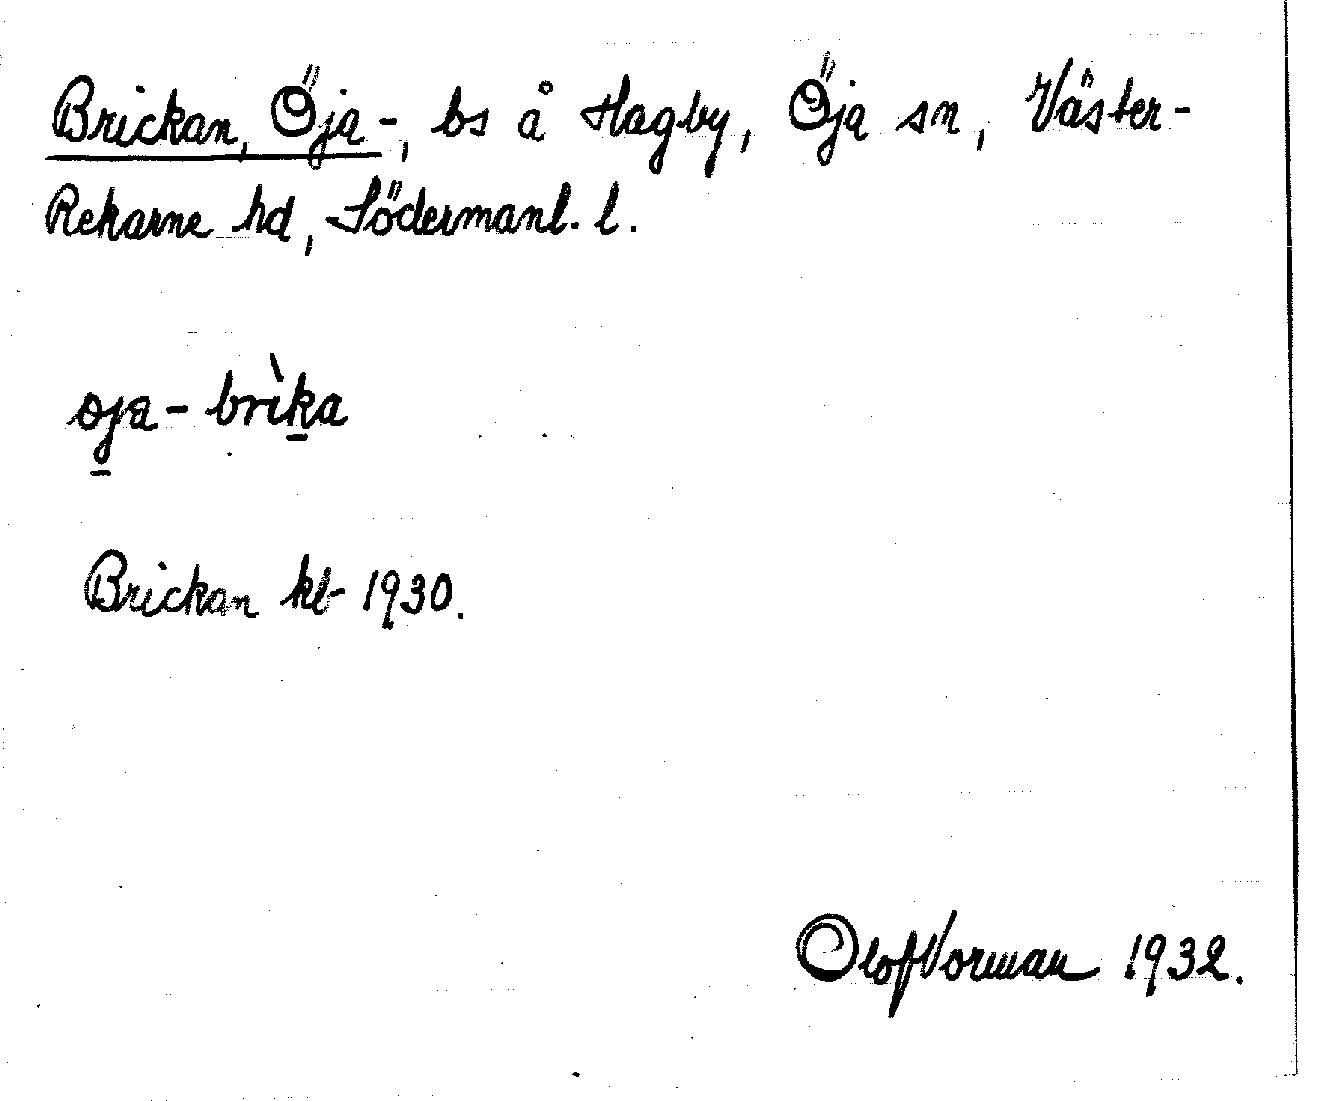 Brickan, Öja-, bs å Hagby, Öja sn, Väster-
Rekarne hd, Södermanl. l.
øja - brìka
Brickan kb 1930.
Olof Vorman 1932.